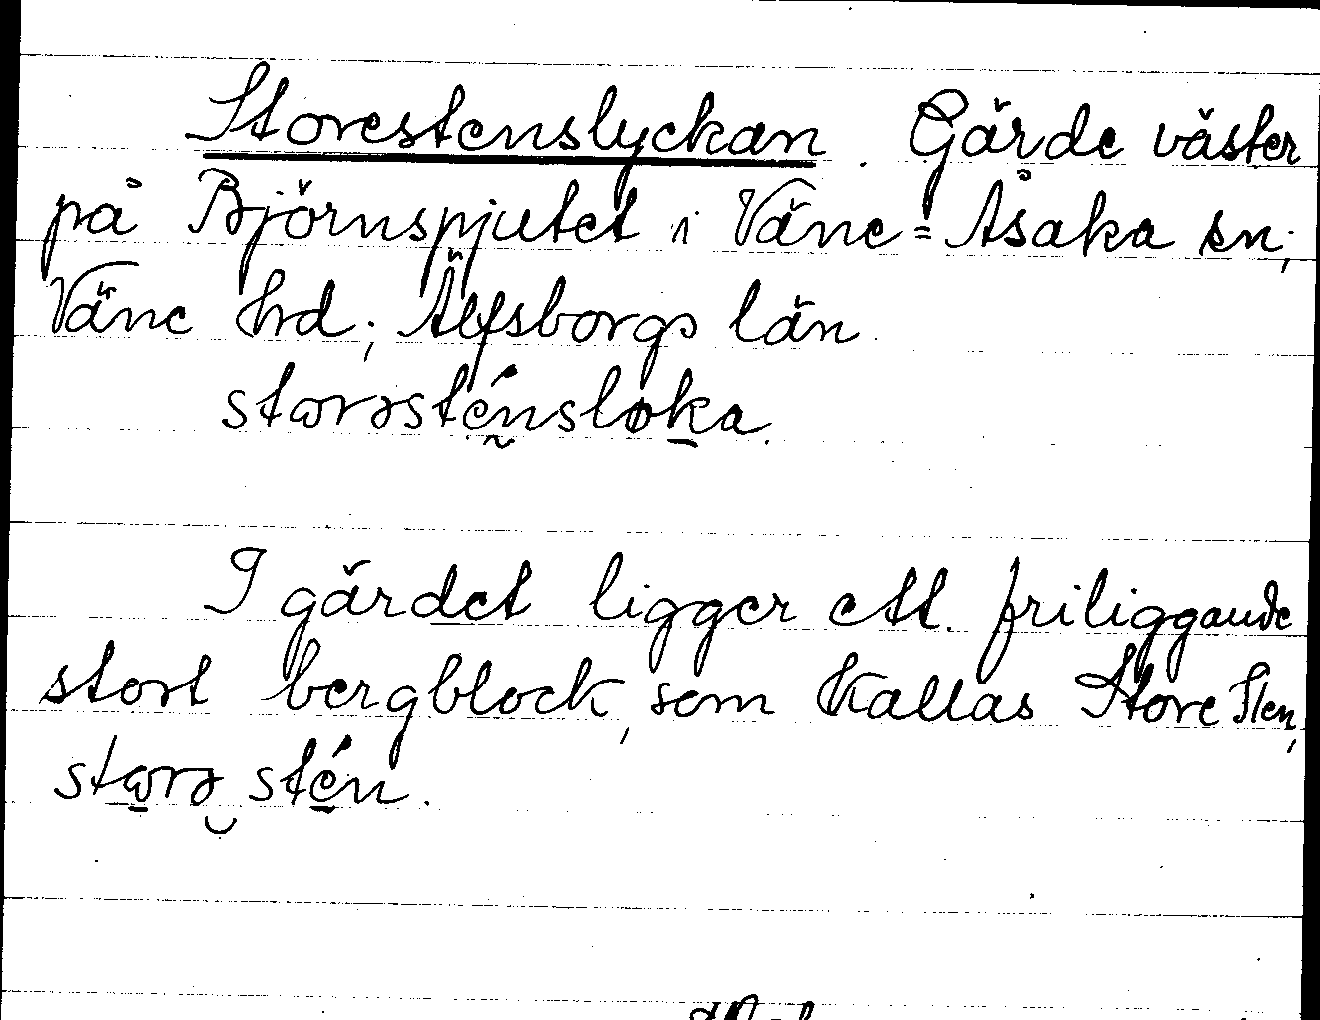 Storestenslyckan. Gärde väster
på Björnspjutet i Väne=Åsaka sn;
Väne hd; Älfsborgs län
stωrəsténsloka.
I gärdet ligger ett friliggande
stort bergblock, som kallas Store Sten,
stωrə stén.